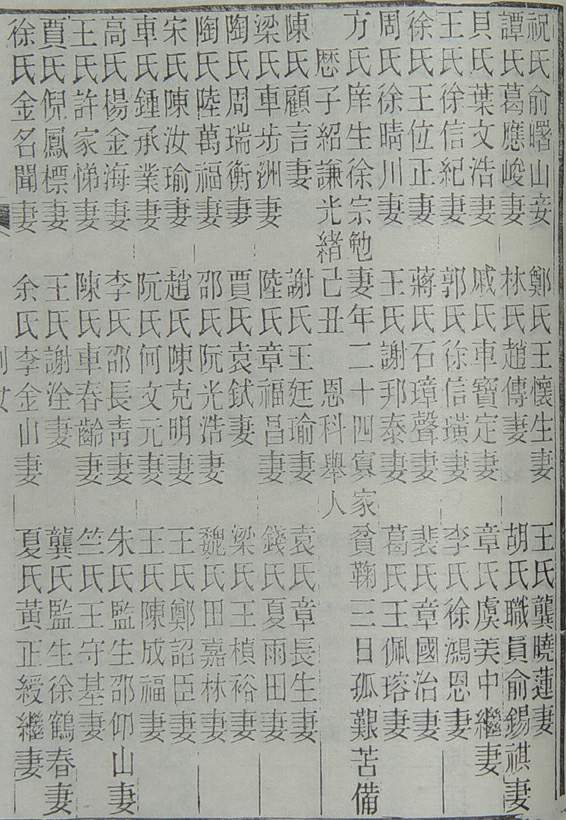 祝氏俞曙山妾 鄭氏王懷生妻 王氏龔曉蓮妻
譚氏葛應峻妻 林氏趙傳妻 胡氏職員俞錫祺妻
貝氏葉文浩妻 戚氏車寶定妻 章氏虞美中繼妻
王氏徐信紀妻 郭氏徐信璜妻 李氏徐鴻恩妻
徐氏王位正妻 蔣氏石璋聲妻 裴氏章國治妻
周氏徐晴川妻 王氏謝邦泰妻 葛氏王佩瑢妻
方氏庠生徐宗勉妻年二十四寡家貧鞠三日孤艱苦備
歷子紹謙光緒己丑 恩科舉人
陳氏顧言妻 謝氏王廷瑜妻 袁氏章長生妻
梁氏車坊洲妻 陸氏章福昌妻 錢氏夏雨田妻
陶氏周瑞衡妻 賈氏袁鉽妻 梁氏王楨裕妻
陶氏陸萬福妻 邵氏阮光浩妻 魏氏田嘉林妻
宋氏陳汝瑜妻 趙氏陳克明妻 王氏鄭詔臣妻
車氏鍾承業妻 阮氏何文元妻 王氏陳成福妻
高氏楊金海妻 李氏邵長靑妻 朱氏監生邵仰山妻
王氏許家悌妻 陳氏車春齡妻 竺氏王守基妻
賈氏倪鳳標妻 王氏謝淦妻 龔氏監生徐鶴春妻
徐氏金名聞妻 余氏李金山妻 夏氏黃正綬繼妻